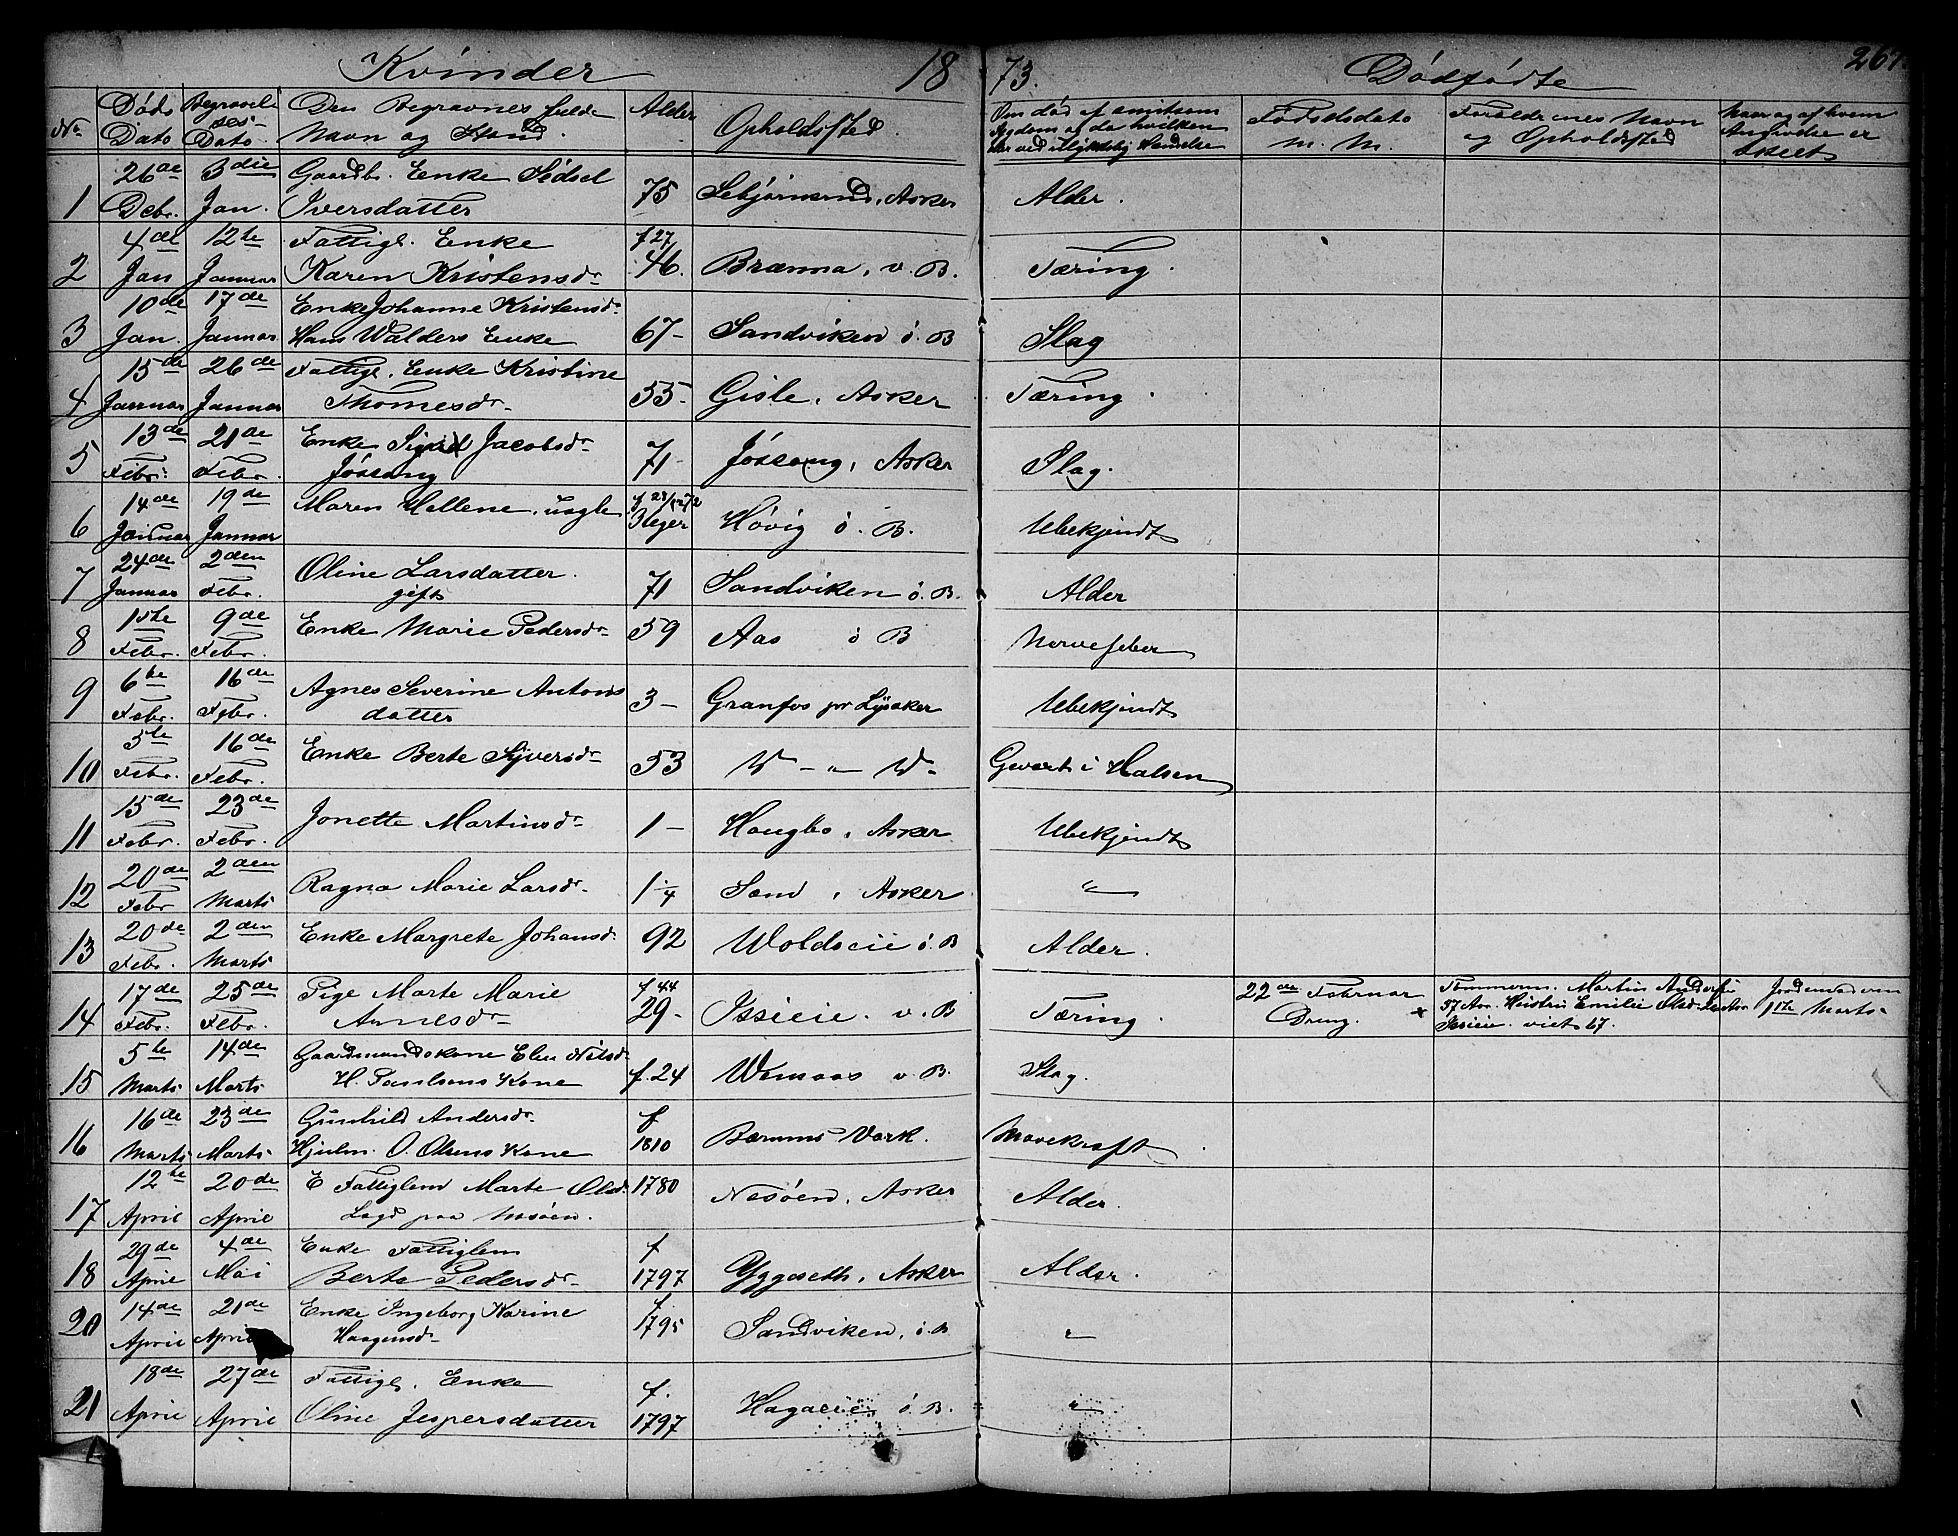 Kvinder 18 73. Dødfødte 267.
No Døds Dato Begravelses-Dato Den Begravnes fulde Navn og Stand. Alder Opholdssted. Om død af smitsom Sygdom og da hvilken eller ved ulykkelig Hændelse Fødselsdato m. M. Forældrenes Navn og Opholdssted Naar og af hvem Angivelse er skeet
1 26de Debr. 3die Jan. Gaardbr. Enke Sidsel Iversdatter 75 Asker Alder.
2 4de Jan 12te Januar Fattigl. Enke Karen Kristensdr f 27/46. Brænna, v. B. Tæring.
3 10de Jan. 17de Januar Enke Johanne Kristensdr Hans Walders Enke 67- Sandviken ö. B Slag
4 15de Januar 26de Januar Fattigl. Enke Kristine Thomesdr 55- Gisle, Asker Tæring.
5 13de Febr. 21de Febr. Enke Sigrid Jacobsdr Jössong 71- Jössong, Asker Slag.
6 14de Januar 19de Januar Maren Hellene, uægte 3 Uger Hövig ö. B. Ubekjendt
7 24de Januar 2den Febr. Oline Larsdatter. gift 71 Sandviken ö. B. Alder
8 1ste Febr. 9de Febr. Enke Marie Pedersdr 59 Aas ö B Nervefeber
9 6te Febr. 16de Febr. Agnes Severine Antons datter 3- Granfos pr Lysaker Ubekjendt
10 5te Febr. 16de Febr. Enke Berte Syversdr 53 Gvext i Halsen
11 15de Febr. 23de Febr. Jonette Martinsdr 1- Haugbo, Asker Ubekjendt
12 20de Febr 2den Marts Ragna Marie Larsdr 1 1/4 Sem, Asker "
13 20de Febr. 2den Marts Enke Margrete Johansd. 92 Woldseie ö. B Alder.
14 17de Febr. 25de Febr. Pige Marte Marie Arnesdr f 44 29- Issieie. v. B Tæring. 22de Februar Dreng. Tømmerm. Martin Anders 37 Aar. Emilie Olsd. Issieie. viet 67. Jordemoderen 1ste Marts
15 5te Marts 14de Marts Gaardmandskone Elen Nilsd. H. Paulsens Kone f. 24 v. B. Slag.
16 16de Marts 23de Marts Gunhild Andersdr Hjulm. O. Olsens Kone f 1810 Bærums Værk. Mavekræft
17 12te April 20de April E Fattiglem Marte Olsd. Lægd paa Nesöen. 1780 Nesöen, Asker Alder.
18 29de April 4de Mai Enke Fattiglem Berte Pedersdr f 1797 Yggeseth, Asker Alder.
20 14de April 21de April Enke Ingeborg Karine Haagensdr f. 1795 Sandviken, ö. B "
21 18de April 27de April Fattigl. Enke Oline Jespersdatter f. 1797 Hagaeie ö. B. "